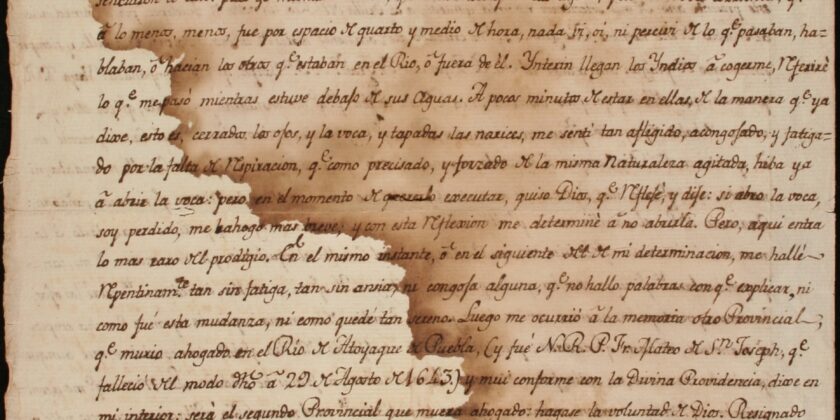 à lo menos, menos, fue por espacio de quarto y medio de hora, nada vi, oí, ni perciví de lo q.e pasaban, ha-
blaban, ò hacian los otros q.e estaban en el Rio, ò fuera de èl. Ynterin llegan los Yndios à cogerme, referirè
lo q.e me pasó mientras estuve debaxo de sus aguas. A pocos minutos de estar en ellas, de la manera q.e ya
dixe, esto es, cerrados los ojos, y la voca, y tapadas las narices, me sentí tan afligido, acongojado, y fatiga-
do por la falta de respiracion, q.e como precisado, y forzado de la misma Naturaleza agitada, hiba ya
à abrir la voca: pero en el momento de quererlo executar, quiso Dios, q.e reflexè, y dixe: si abro la voca,
soy perdido, me ahogo mas breve; y con esta reflexion me determinè à no abrirla. Pero, aqui entra
lo mas raro del prodigio. En el mismo instante, ò en el siguiente del de mi determinacion, me hallè
repentinam.te tan sin fatiga, tan sin ansia, ni congoja alguna, q.e no hallo palabras con q.e explicar, ni
como fué esta mudanza, ni como quedè tan sereno. Luego me ocurriò à la memoria otro Provincial,
q.e murio ahogado en el Rio de Atoyaque de Puebla, (y fué N. R. P. Fr. Mateo de S.n Joseph, q.e
falleció del modo dho à 29 de Agosto de 1643) y mui conforme con la Divina Providencia, dixe en
mi interior: será el segundo Provincial que muera ahogado: hagase la voluntad de Dios. Resignado